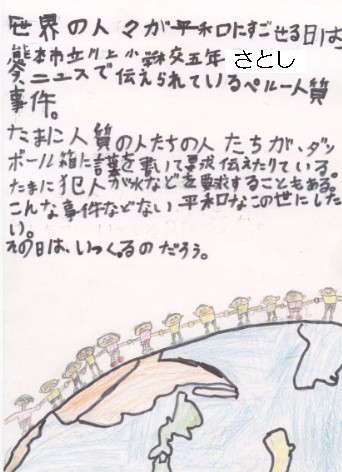 世界の人々が平和にすごせる日は
熊本市立川上小学校五年 さとし
今ニュースで伝えられているペルー人質
事件。
たまに人質の人たちの人たちが、ダン
ボール箱に言葉を書いて要求伝えたりている。
たまに犯人が水などを要求することもある。
こんな事件などない平和なこの世にした
い。
その日は、いつくるのだろう。